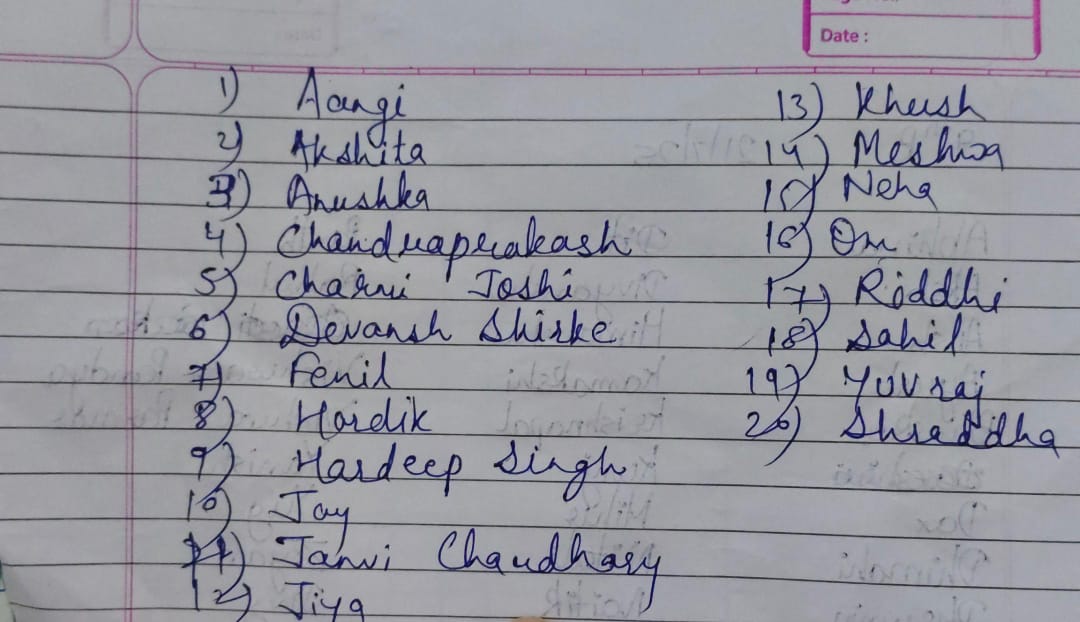 Date :
1) Aangi
2) Akshita
3) Anushka
4) Chandraprakash
5) Charvi Joshi
6) Devansh Shirke
7) Fenil
8) Hardik
9) Hardeep Singh
10) Jay
11) Janvi Chaudhary
12) Jiya
13) Khush
14) Meshwa
15) Neha
16) Om
17) Riddhi
18) Sahil
19) Yuvraj
20) Shraddha